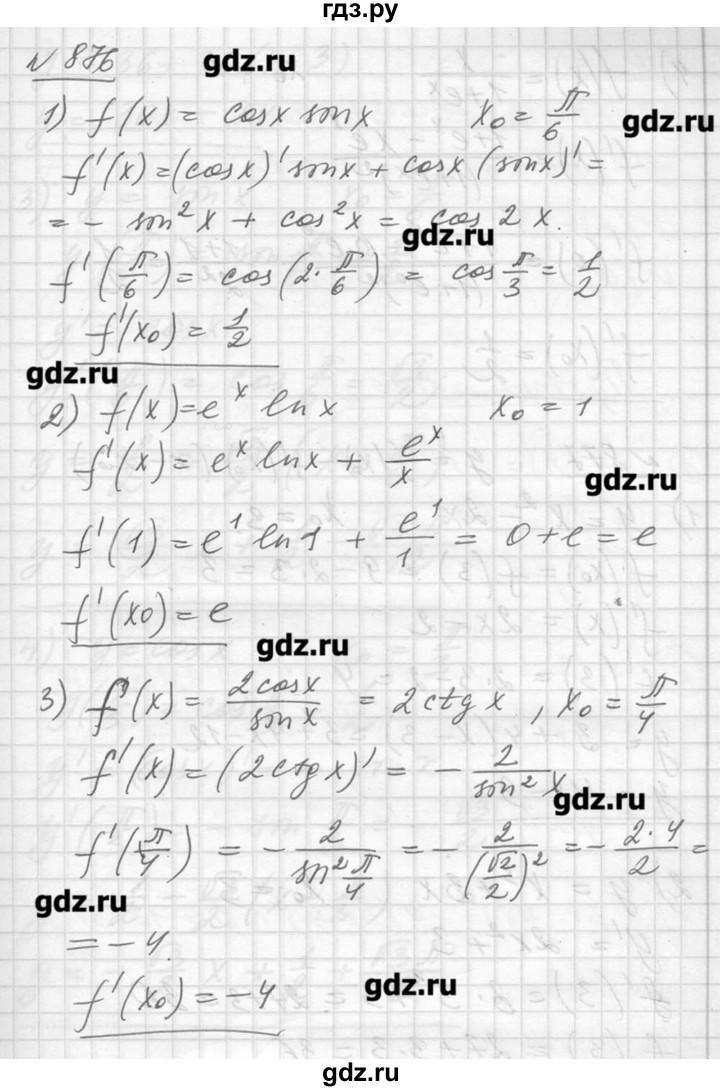 гдз.ру
N 876 gdz.ru
1) f(x) = cosx sinx x₀ = π/6 gdz.ru
f'(x) = (cosx)' sinx + cosx (sinx)' =
= - sin²x + cos²x = cos 2x.
gdz.ru
f'(π/6) = cos(2·π/6) = cos π/3 = 1/2
f'(x₀) = 1/2
gdz.ru
2) f(x) = eˣ lnx x₀ = 1
f'(x) = eˣ lnx + eˣ/x
gdz.ru
f'(1) = e¹ ln1 + e¹/1 = 0 + e = e
f'(x₀) = e
gdz.ru
3) f'(x) = 2cosx/sinx = 2ctgx, x₀ = π/4
f'(x) = (2ctgx)' = - 2/sin²x
gdz.ru
f'(π/4) = - 2/sin²π/4 = - 2/(√2/2)² = - 2·4/2 =
gdz.ru
= -4.
gdz.ru
f'(x₀) = -4
gdz.ru